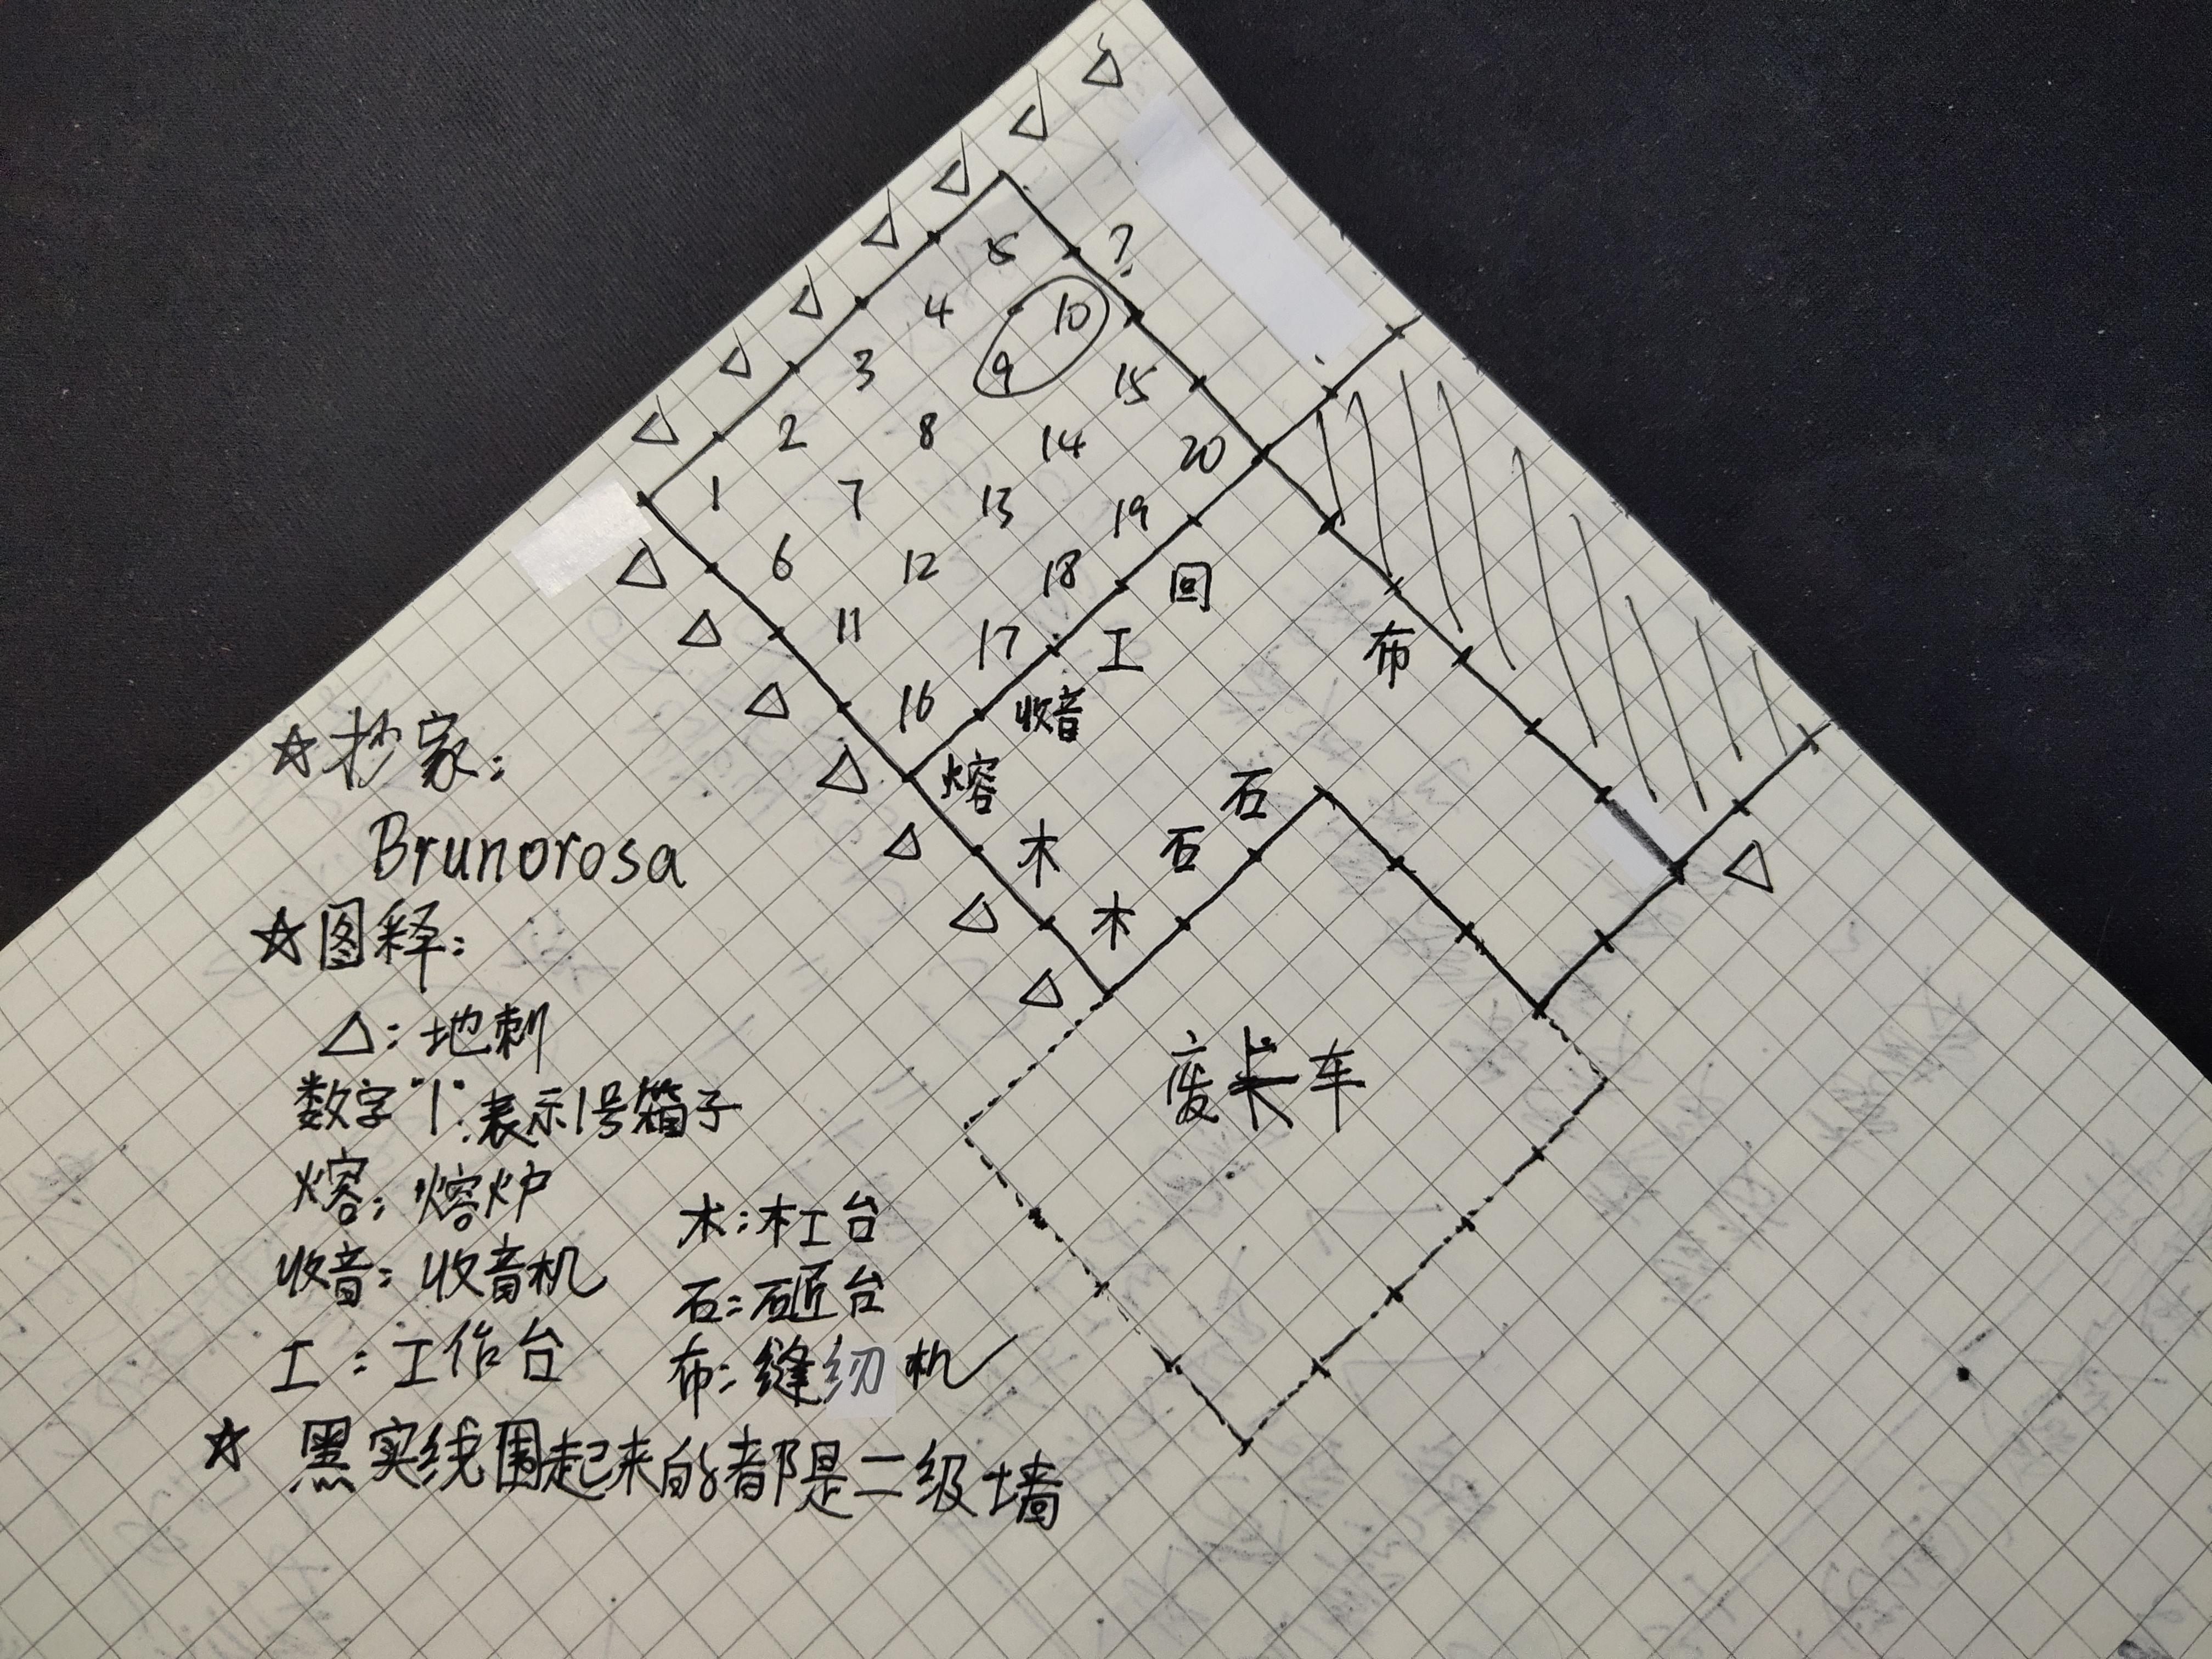 △ △ △ △ △ △ △ △
5 ?
4 10
3 9 15
2 8 14 20
1 7 13 19
△ 6 12 18 回
△ 11 17 工 布
△ 16 收音
△ 熔 石
△ 木 石 △
△ 木
△
废卡车
☆抄家:
Brunorosa
☆图释:
△:地刺
数字"1":表示1号箱子
熔:熔炉
收音:收音机
工:工作台
木:木工台
石:石匠台
布:缝纫机
☆ 黑实线围起来的都是二级墙